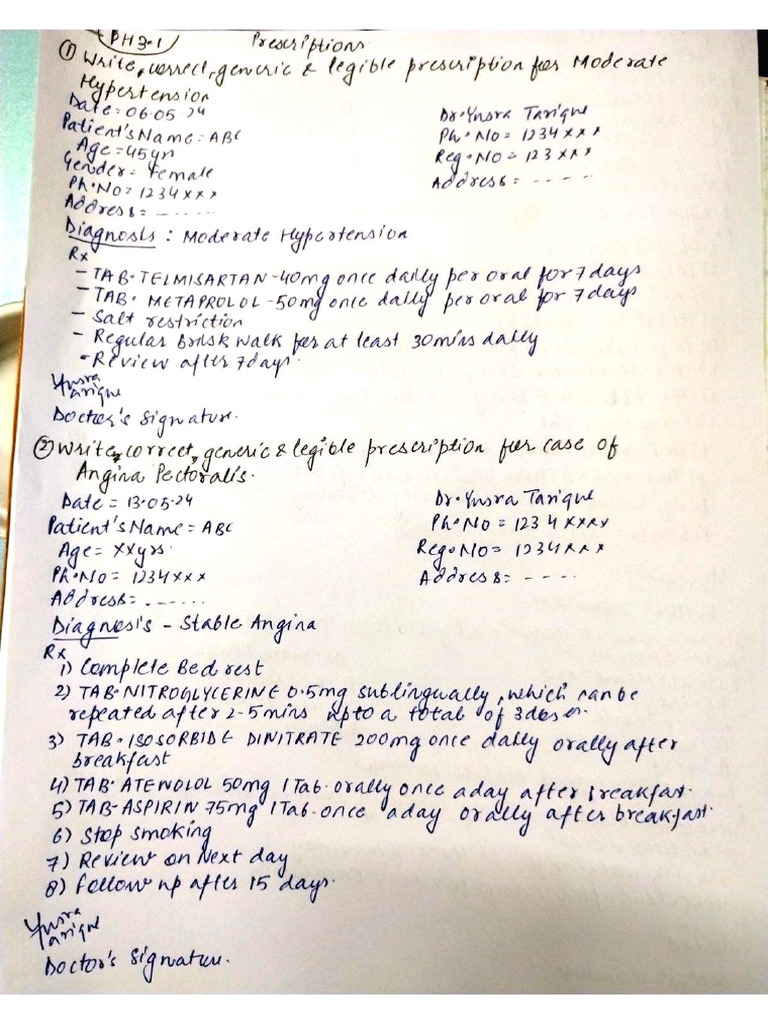 PH 3.1 Prescriptions
① Write, correct, generic & legible prescription for Moderate
Hypertension
Date = 06.05.24
Dr. Yusra Tarique
Patient's Name = ABC
Ph. No = 1234xxx
Age = 45yr
Reg. No = 123xxx
Gender = Female
Address = -----
Ph. No = 1234xxx
Address = ------
Diagnosis : Moderate Hypertension
Rx
- TAB. TELMISARTAN - 40mg once daily per oral for 7 days
- TAB. METAPROLOL - 50mg once daily per oral for 7 days
- Salt restriction
- Regular brisk walk for at least 30mins daily
- Review after 7days.
Yusra
Tarique
Doctor's Signature.
② Write, correct, generic & legible prescription for case of
Angina Pectoralis.
Date = 13.05.24
Dr. Yusra Tarique
Patient's Name = ABC
Ph. No = 1234xxxx
Age = XXyrs.
Reg. No = 1234xxx
Ph. No = 1234xxx
Address = ----
Address = ------
Diagnosis - Stable Angina
Rx
1) Complete Bed rest
2) TAB. NITROGLYCERINE 0.5mg sublingually, which can be
repeated after 2-5mins upto a total of 3doses.
3) TAB. ISOSORBIDE DINITRATE 200mg once daily orally after
breakfast
4) TAB. ATENOLOL 50mg 1Tab. orally once a day after breakfast.
5) TAB- ASPIRIN 75mg 1Tab. once a day orally after breakfast.
6) Stop smoking
7) Review on Next day
8) Follow up after 15 days.
Yusra
Tarique
Doctor's Signature.